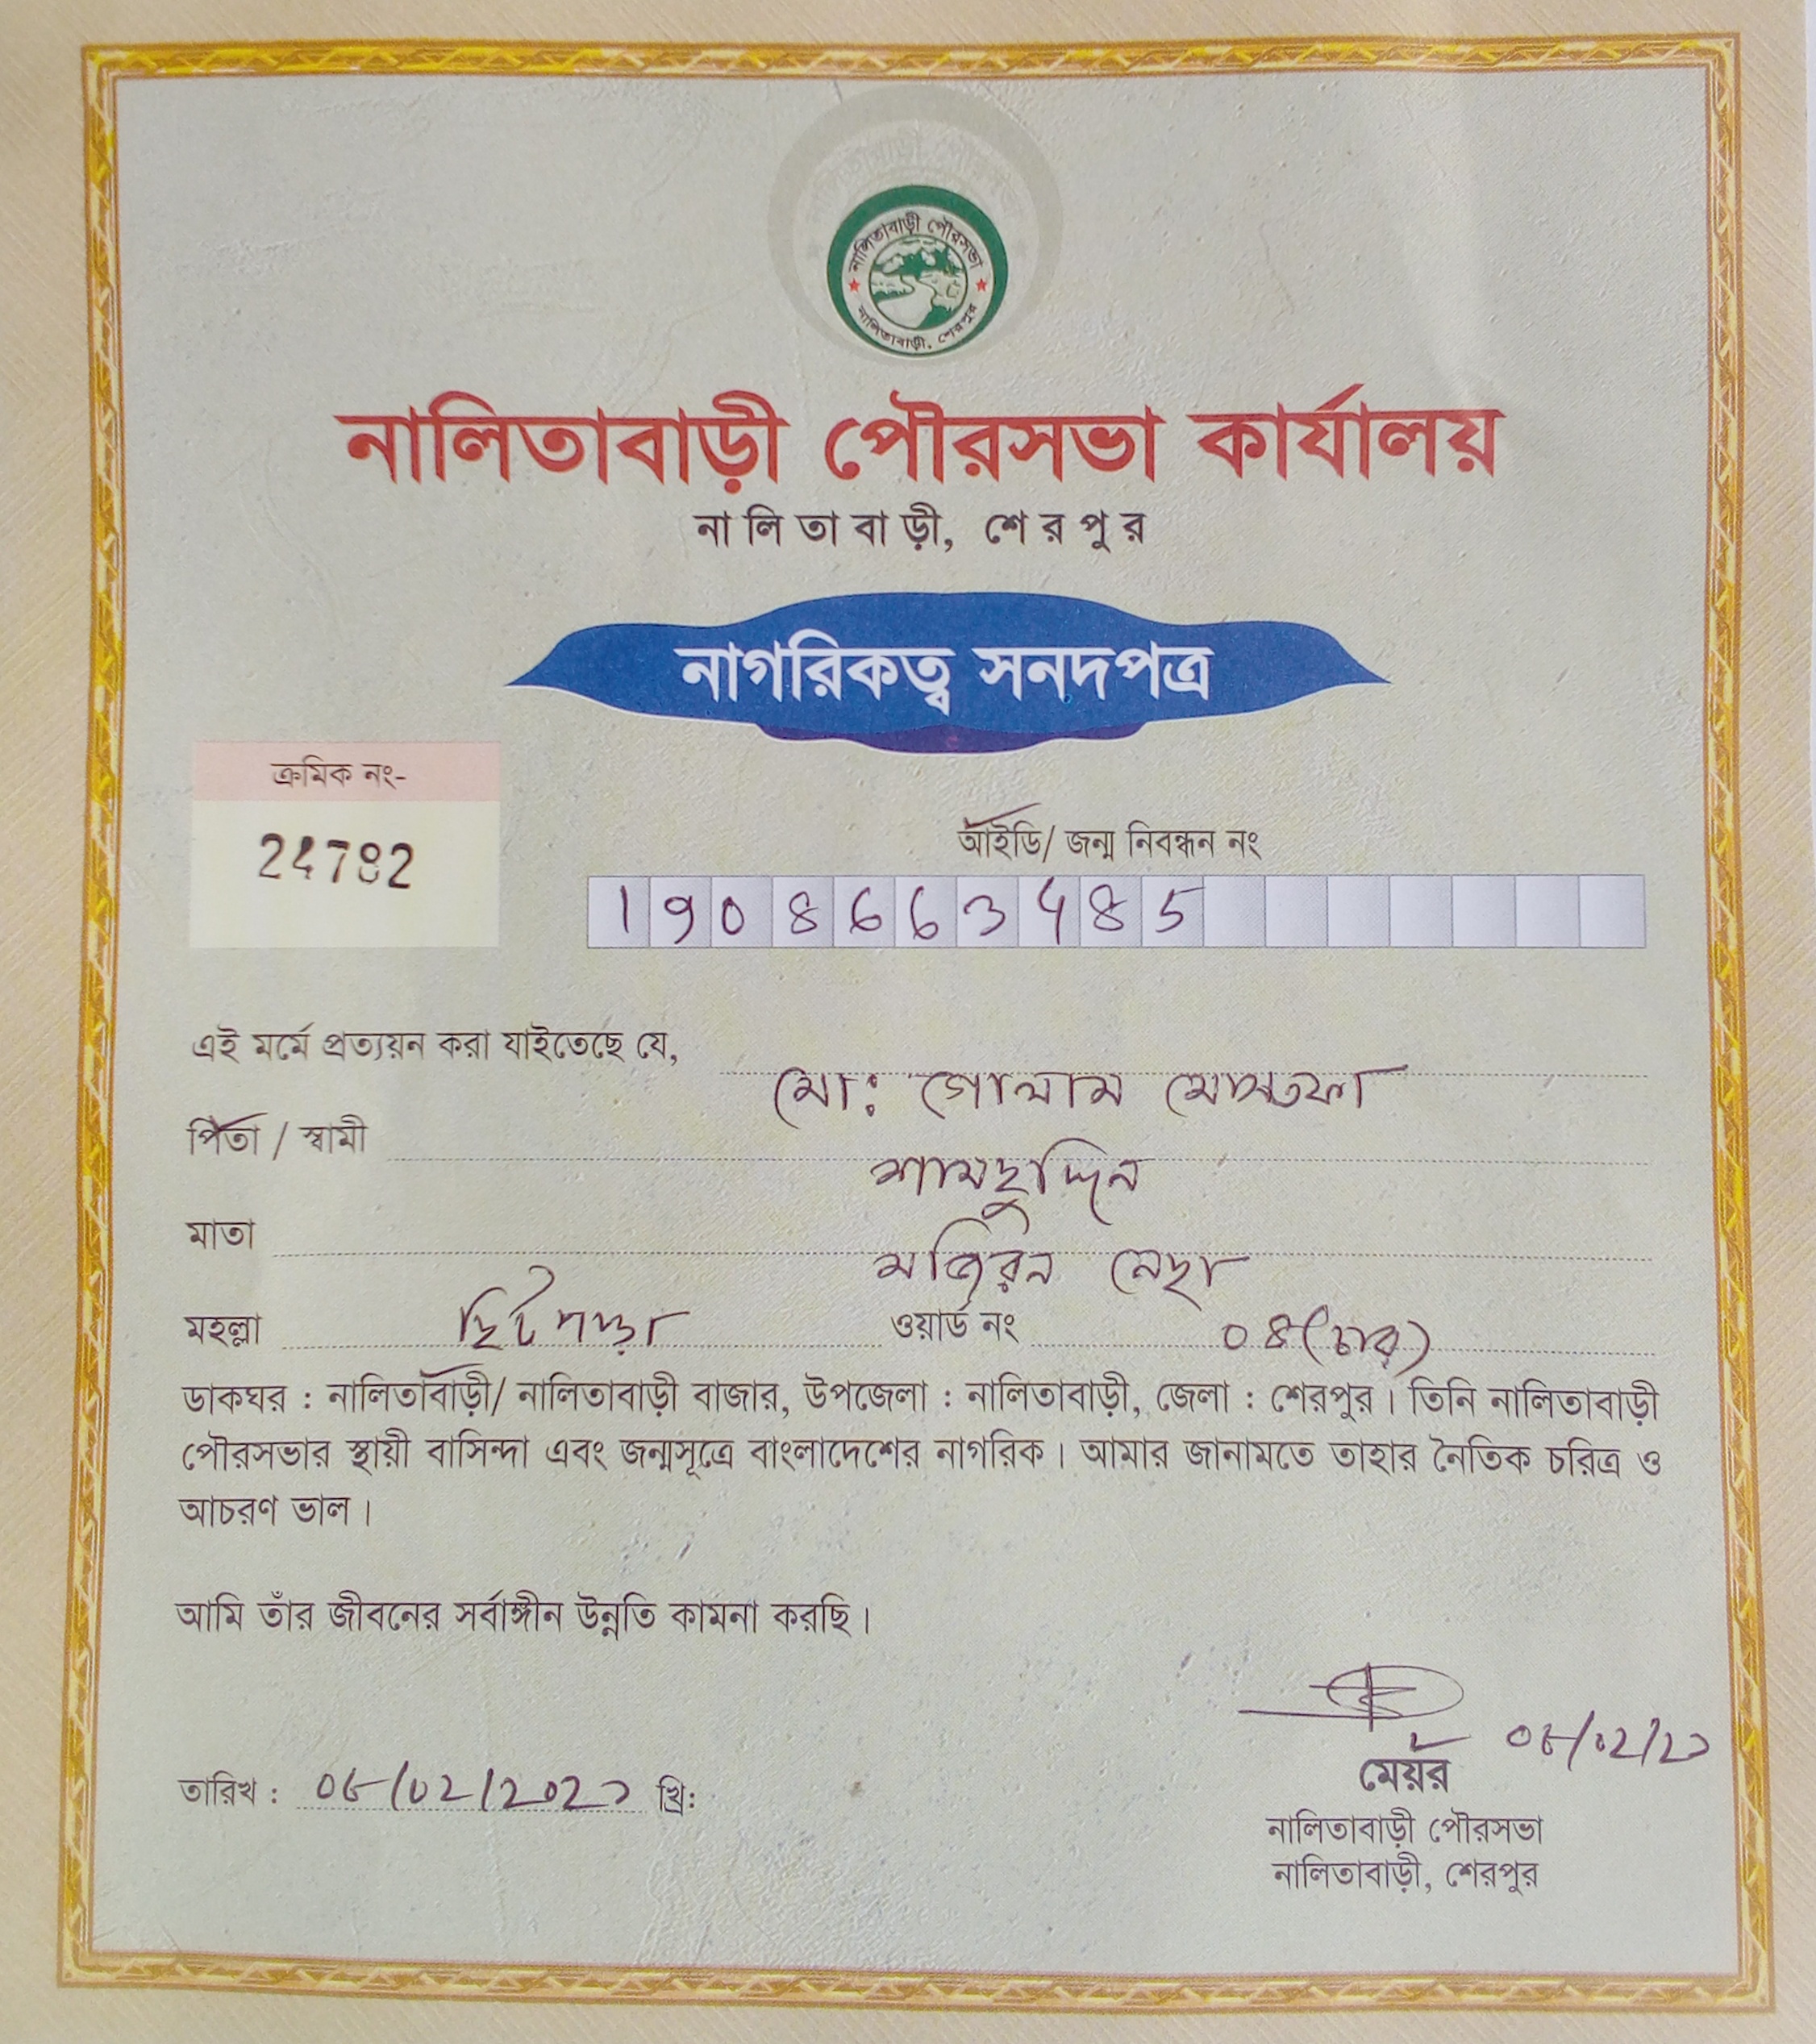 নালিতাবাড়ী পৌরসভা
নালিতাবাড়ী, শেরপুর
নালিতাবাড়ী পৌরসভা কার্যালয়
নালিতাবাড়ী, শেরপুর
নাগরিকত্ব সনদপত্র
ক্রমিক নং-
24782
আইডি/ জন্ম নিবন্ধন নং
1908663485
এই মর্মে প্রত্যয়ন করা যাইতেছে যে, মো: গোলাম মোস্তফা
পিতা / স্বামী শামছুদ্দিন
মাতা মজিরন নেছা
মহল্লা ছিটপাড়া ওয়ার্ড নং ০৪(চার)
ডাকঘর : নালিতাবাড়ী/ নালিতাবাড়ী বাজার, উপজেলা : নালিতাবাড়ী, জেলা : শেরপুর। তিনি নালিতাবাড়ী
পৌরসভার স্থায়ী বাসিন্দা এবং জন্মসূত্রে বাংলাদেশের নাগরিক। আমার জানামতে তাহার নৈতিক চরিত্র ও
আচরণ ভাল।
আমি তাঁর জীবনের সর্বাঙ্গীন উন্নতি কামনা করছি।
তারিখ : খ্রি:
মেয়র
নালিতাবাড়ী পৌরসভা
নালিতাবাড়ী, শেরপুর